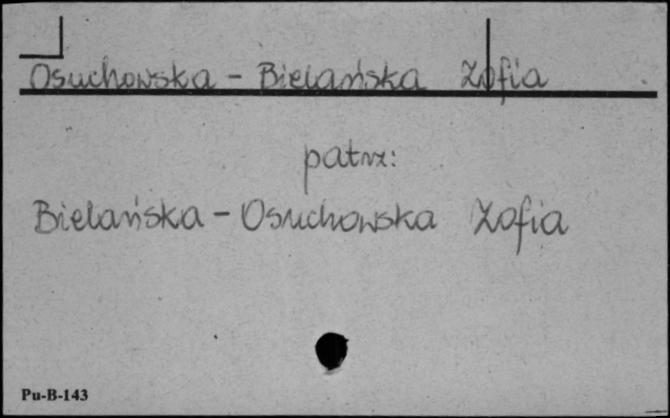 Osuchowska - Bielańska Zofia
patrz:
Bielańska - Osuchowska Zofia
Pu-B-143